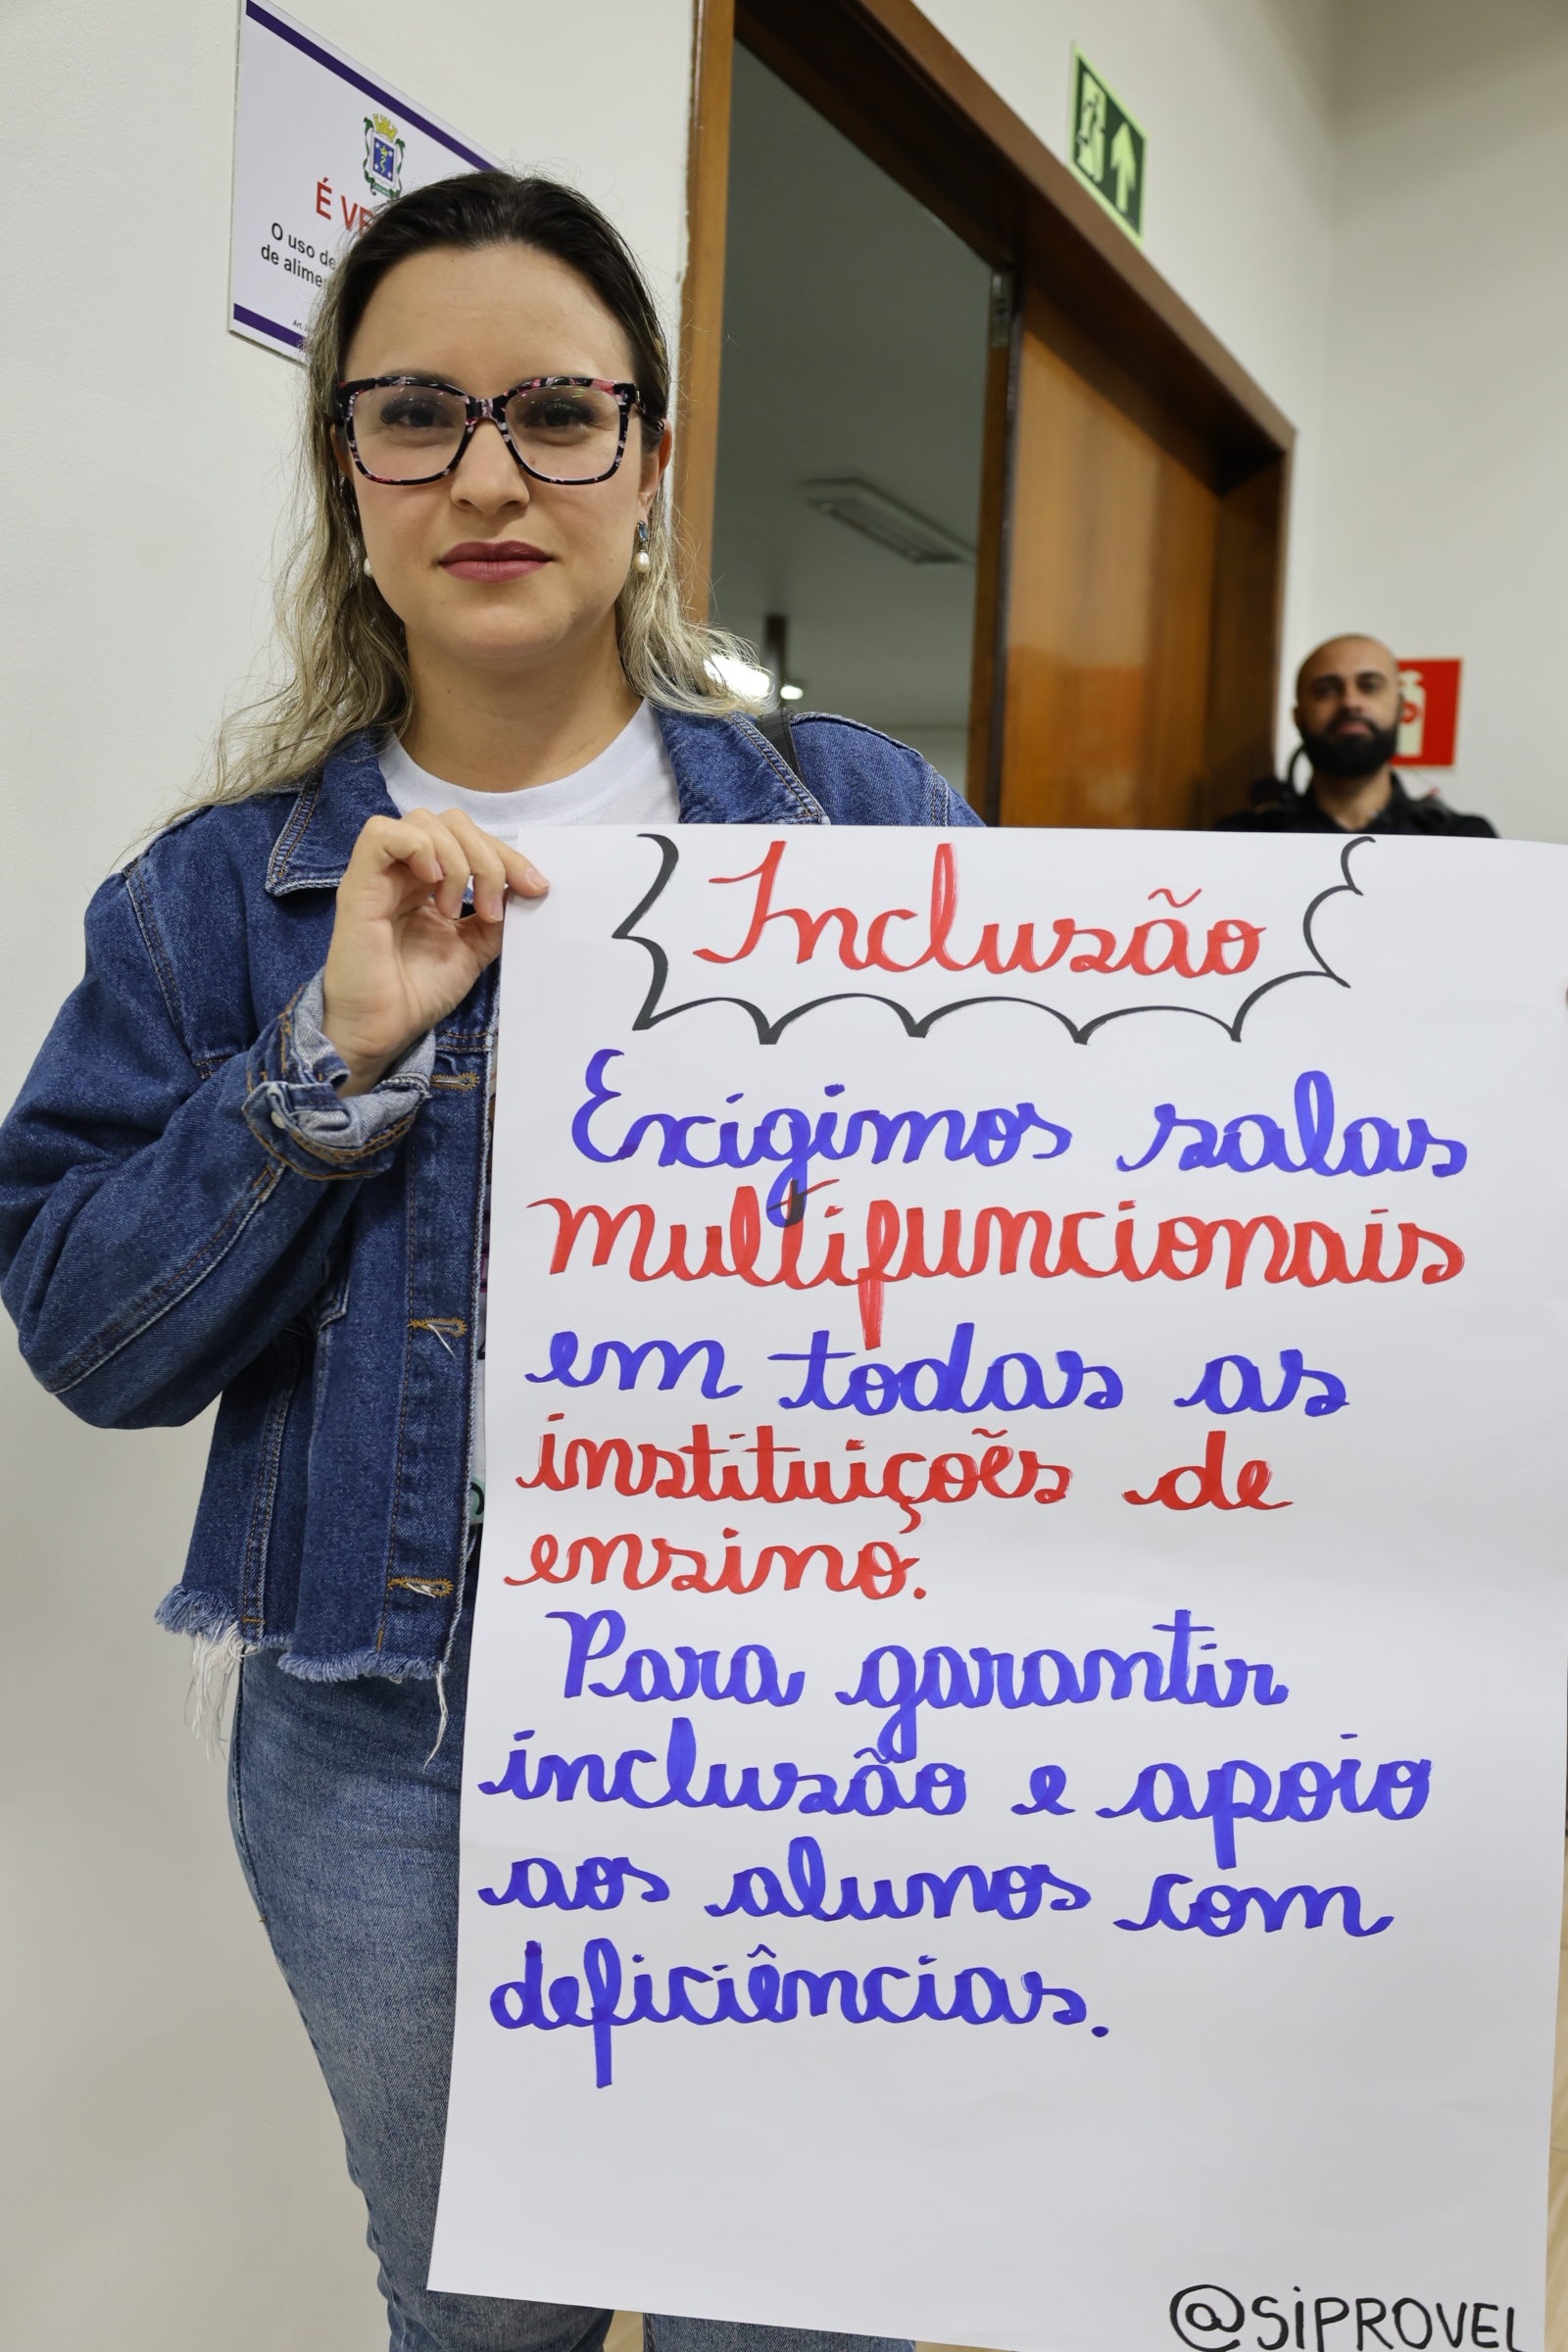 É
O uso de
de
Inclusão
Exigimos salas
multifuncionais
em todas as
instituições de
ensino.
Para garantir
inclusão e apoio
aos alunos com
deficiências.
@SiPROVEL